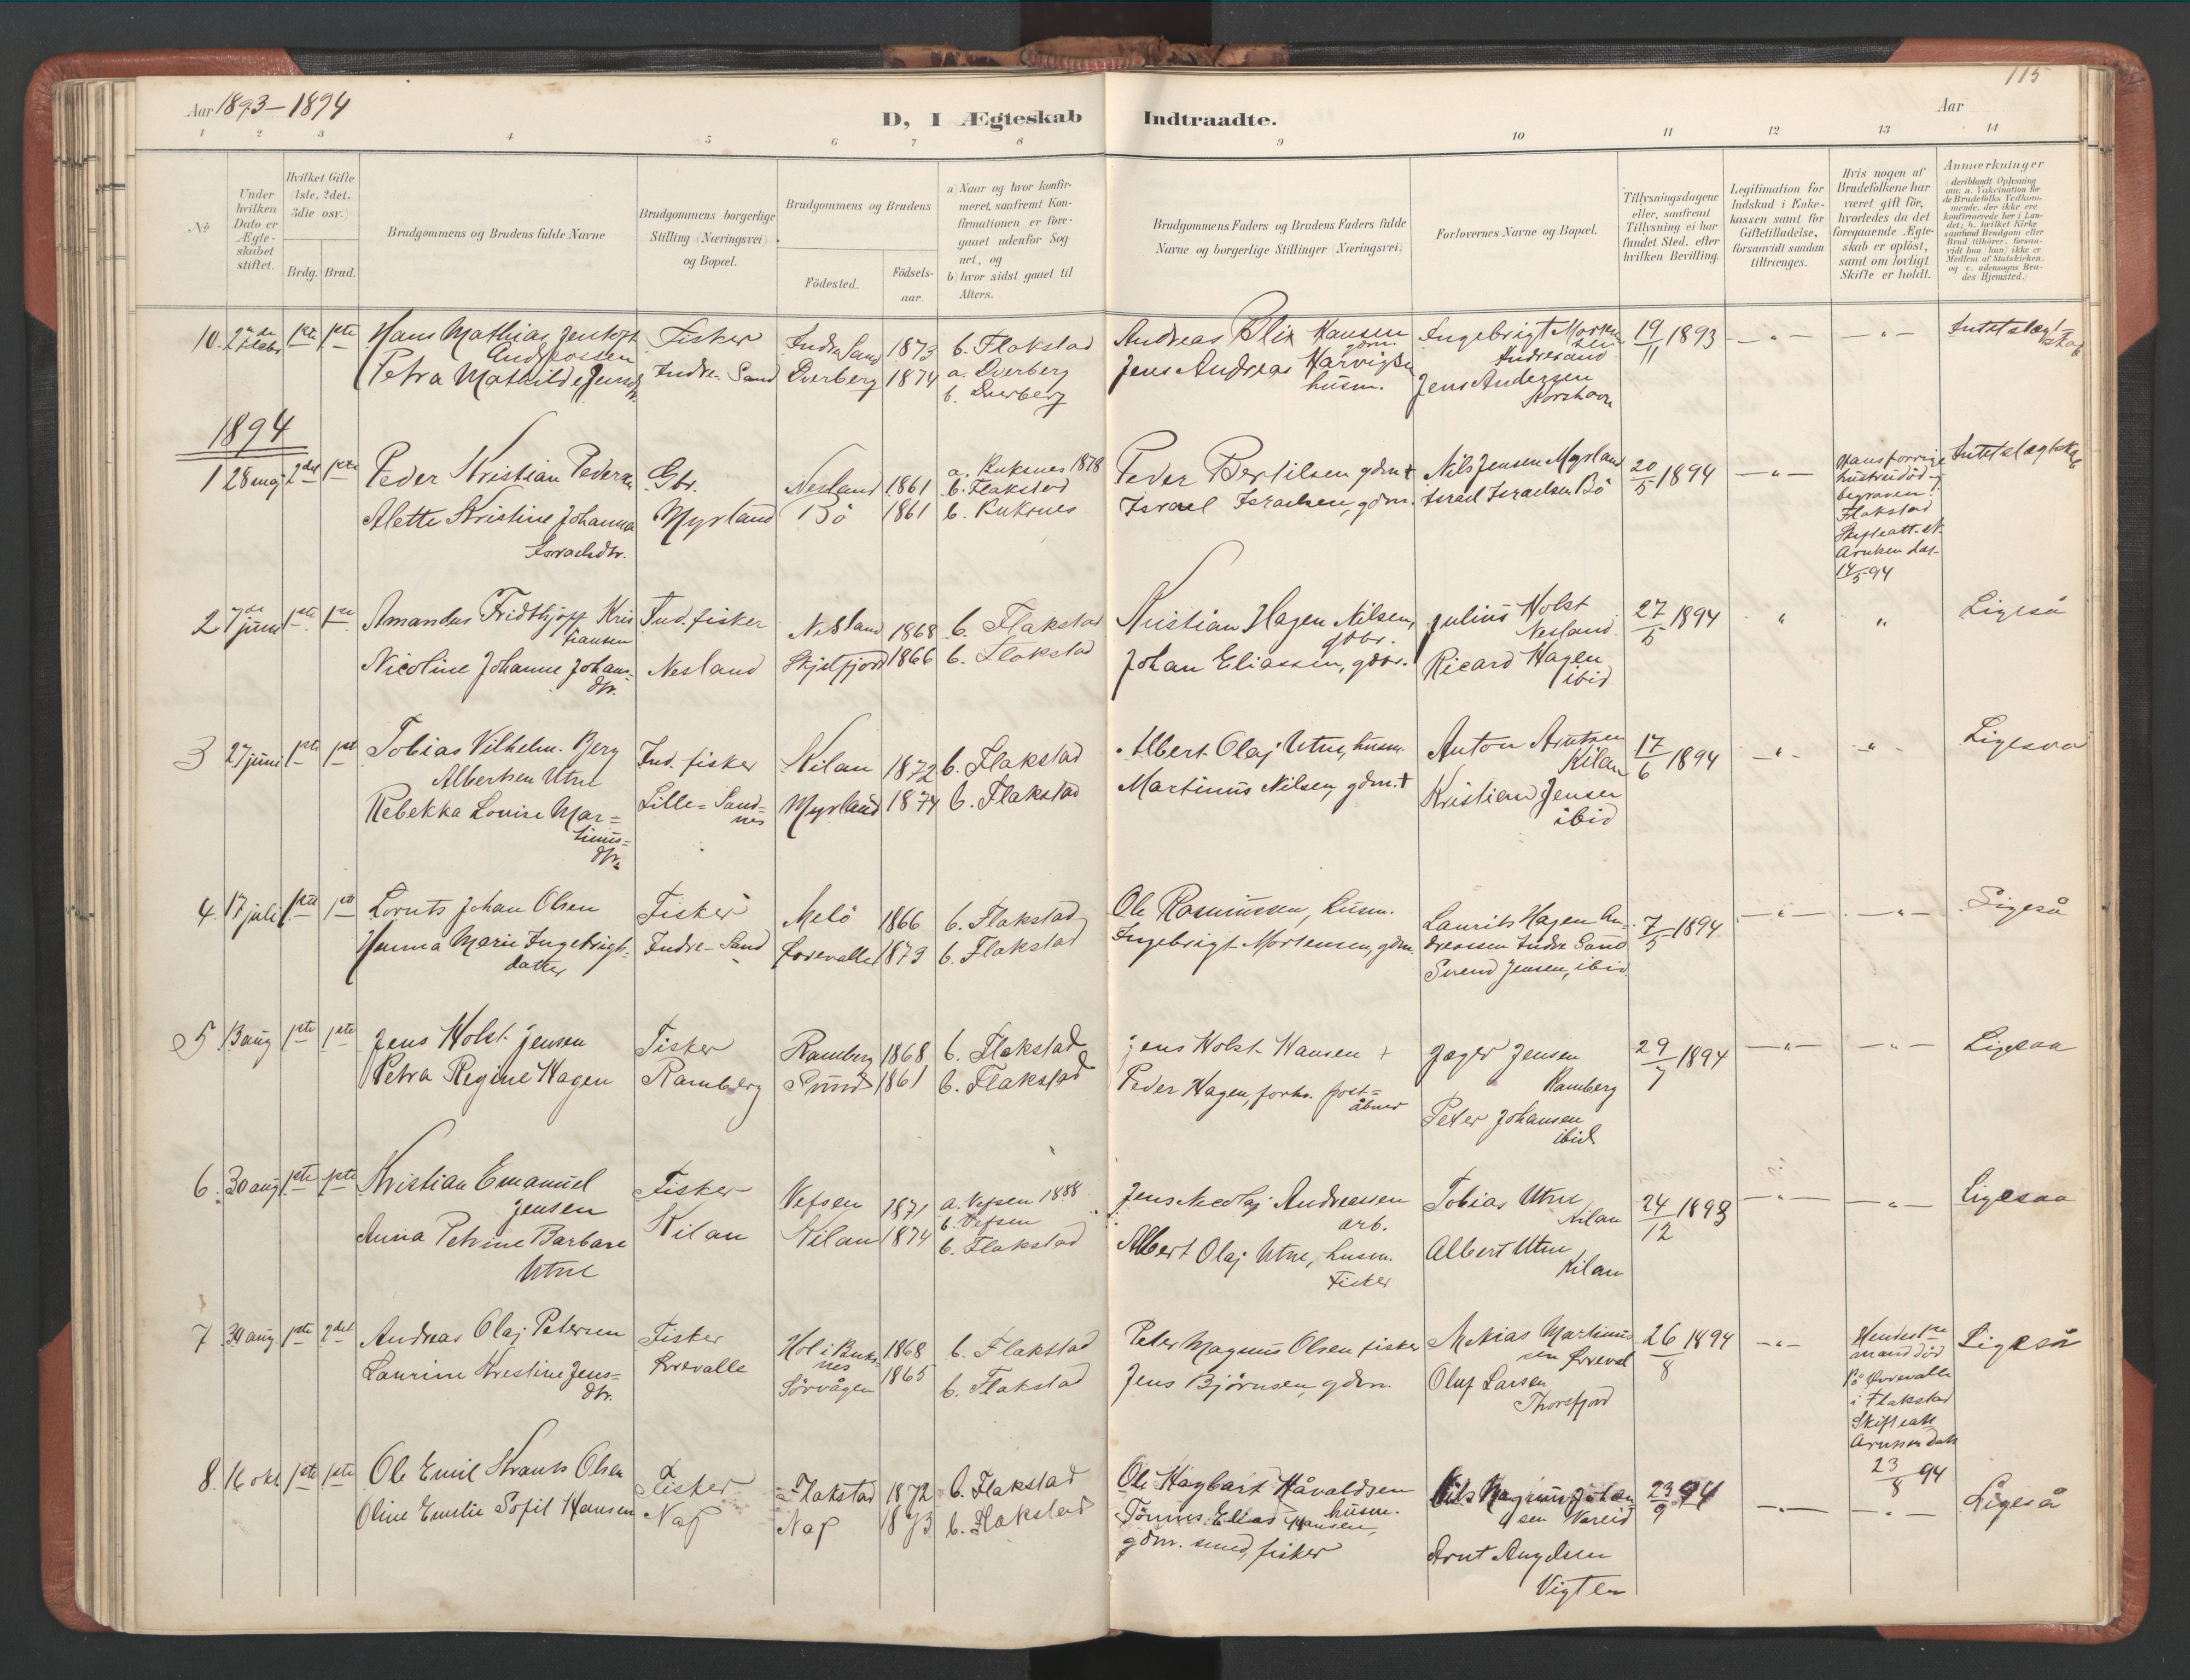 115
Aar 1893-1894
D, I Ægteskab Indtraadte.
Aar
1 2 3 4 5 6 7 8 9 10 11 12 13 14
No
Under hvilken Dato er Ægteskabet stiftet.
Hvilket Gifte (1ste, 2det, 3die osv.)
Brdg. Brud.
Brudgommens og Brudens fulde Navne
Brudgommens borgerlige Stilling (Næringsvei) og Bopæl.
Brudgommens og Brudens
Fødested.
Fødselsaar.
a) Naar og hvor konfirmeret, saafremt Konfirmationen er foregaaet udenfor Sognet, og
b) hvor sidst gaaet til Alters.
Brudgommens Faders og Brudens Faders fulde Navne og borgerlige Stillinger (Næringsvei)
Forlovernes Navne og Bopæl.
Tillysningsdagene eller, saafremt Tillysning ei har fundet Sted, efter hvilken Bevilling.
Legitimation for Indskud i Enkekassen samt for Giftetilladelse, forsaavidt saadan tiltrænges.
Hvis nogen af Brudefolkene har været gift før, hvorledes da det foregaaende Ægteskab er opløst, samt om lovligt Skifte er holdt.
Anmærkninger
(deriblandt Oplysning om: a. Vakcination for de Brudefolks Vedkommende, der ikke ere konfirmerede her i Landet; b. hvilket Kirkesamfund Brudgom eller Brud tilhører, forsaavidt han (hun) ikke er Medlem af Statskirken, og c. udensogns Brudes Hjemsted.)
10. 2den 1ste 1ste Hans Mathias Jentoft Fisker Indre Sand 1873 b. Flakstad Andreas Blix Hansen Ingebrigt Morten 19/11 1893 -"- -"- Intet slægtskab
Andreassen gdm. sen Indresand
Petra Mathilde Jens Indre-Sand Dverberg 1874 a. Dverberg Jens Andreas Harvigsen Jens Andersen
b. Dverberg husm.
1894
1 28 maj 2det 1ste Peder Kristian Pedersen Gbr. Nesland 1861 a. Buksnes 1878 Peder Bertilsen gdm + Nils Jensen Myrland 20/5 1894 -"- Hans forrige Intet slægtskab
b. Flakstad hustru død
Alette Kristine Johanna Myrland Bö 1861 b. Buksnes Israel Israelsen, gdm. Israel Israelsen Bö begraven i
Israelsdtr. Flakstad
14/5 94
2 7de juni 1ste 1ste Amandus Fridthjopf Kris Ind. fisker Nesland 1868 b. Flakstad Kristian Hagen Nilsen, Julius Holst 27/5 1894 " " Ligeså
tiansen gbr. Nesland
Nicoline Johanne Johans- Nesland Skjelfjord 1866 b. Flakstad Johan Eliassen, gbr. Ricard Hagen
dtr. ibid
3 27 juni 1ste 1ste Tobias Vilhelm Berg Ind. fisker Kilan 1872 b. Flakstad Albert Olaj Utne, husm. Anton Arntzen 17/6 1894 -"- -"- Ligesaa
Albertsen Utne Kilan
Rebekka Lovise Mar= Lille=Sand= Myrland 1874 b. Flakstad Martinus Nilsen, gdm. + Kristian Jensen
tinus= nes ibid
dtr.
4. 17 juli 1ste 1ste Loruts Johan Olsen Fisker Melö 1866 b. Flakstad Ole Rasmussen, husm. Laurits Hagen An- 7/5 1894 -"- -"- Ligeså
Hanna Marie Ingebrigt- Indre-Sand Örevalle 1873 b. Flakstad Ingebrigt Mortensen, gdm. dreassen Indre Sand
datter Svend Jensen, ibid.
5 13 aug 1ste 1ste Jens Holst Jensen Fisker Ramberg 1868 b. Flakstad Jens Holst Hansen + Jæger Jensen 29/7 1894 -"- -"- Ligesaa
Ramberg
Petra Regine Hagen Ramberg Sund 1861 b. Flakstad Peder Hagen, forhv. post= Peter Johansen
åbner ibid
6. 30 aug 1ste 1ste Kristian Emanuel Fisker Vefsen 1871 a. Vefsen 1888 Jens Nicolaj Andreassen Tobias Utne 24/12 1893 -"- -"- Ligesaa
Jensen b. Vefsen arb. Kilan
Anna Petrine Barbara Kilan Kilan 1874 b. Flakstad Albert Olaj Utne, husm. Albert Utne
Utne Fisker Kilan
7 30 aug. 1ste 2det Andreas Olaj Petersen Fisker Hol i Buks- 1868 b. Flakstad Peter Magnus Olsen fisker Mekias Martinus 26/8 1894 -"- Hendes 1ste Ligeså
nes sen Örevall mand död
Laurine Kristine Jens= Örevalle Sörvågen 1865 b. Flakstad Jens Björnsen, gdm. Oluf Larsen på Örevalle
dtr. Thorsfjord i Flakstad
23/8 94
8. 16 okt. 1ste 1ste Ole Emil Krants Olsen Fisker Flakstad 1872 b. Flakstad Ole Hagbart Håvaldsen Nils Magnus Johan 23/9 94 -"- -"- Ligeså
husm. sen Vareid
Oline Emilie Sofie Hansen Nap Nap 1873 b. Flakstad Tönnes Elias Hansen, Arnt Angelsen
gdm. smed, fisker Vigten